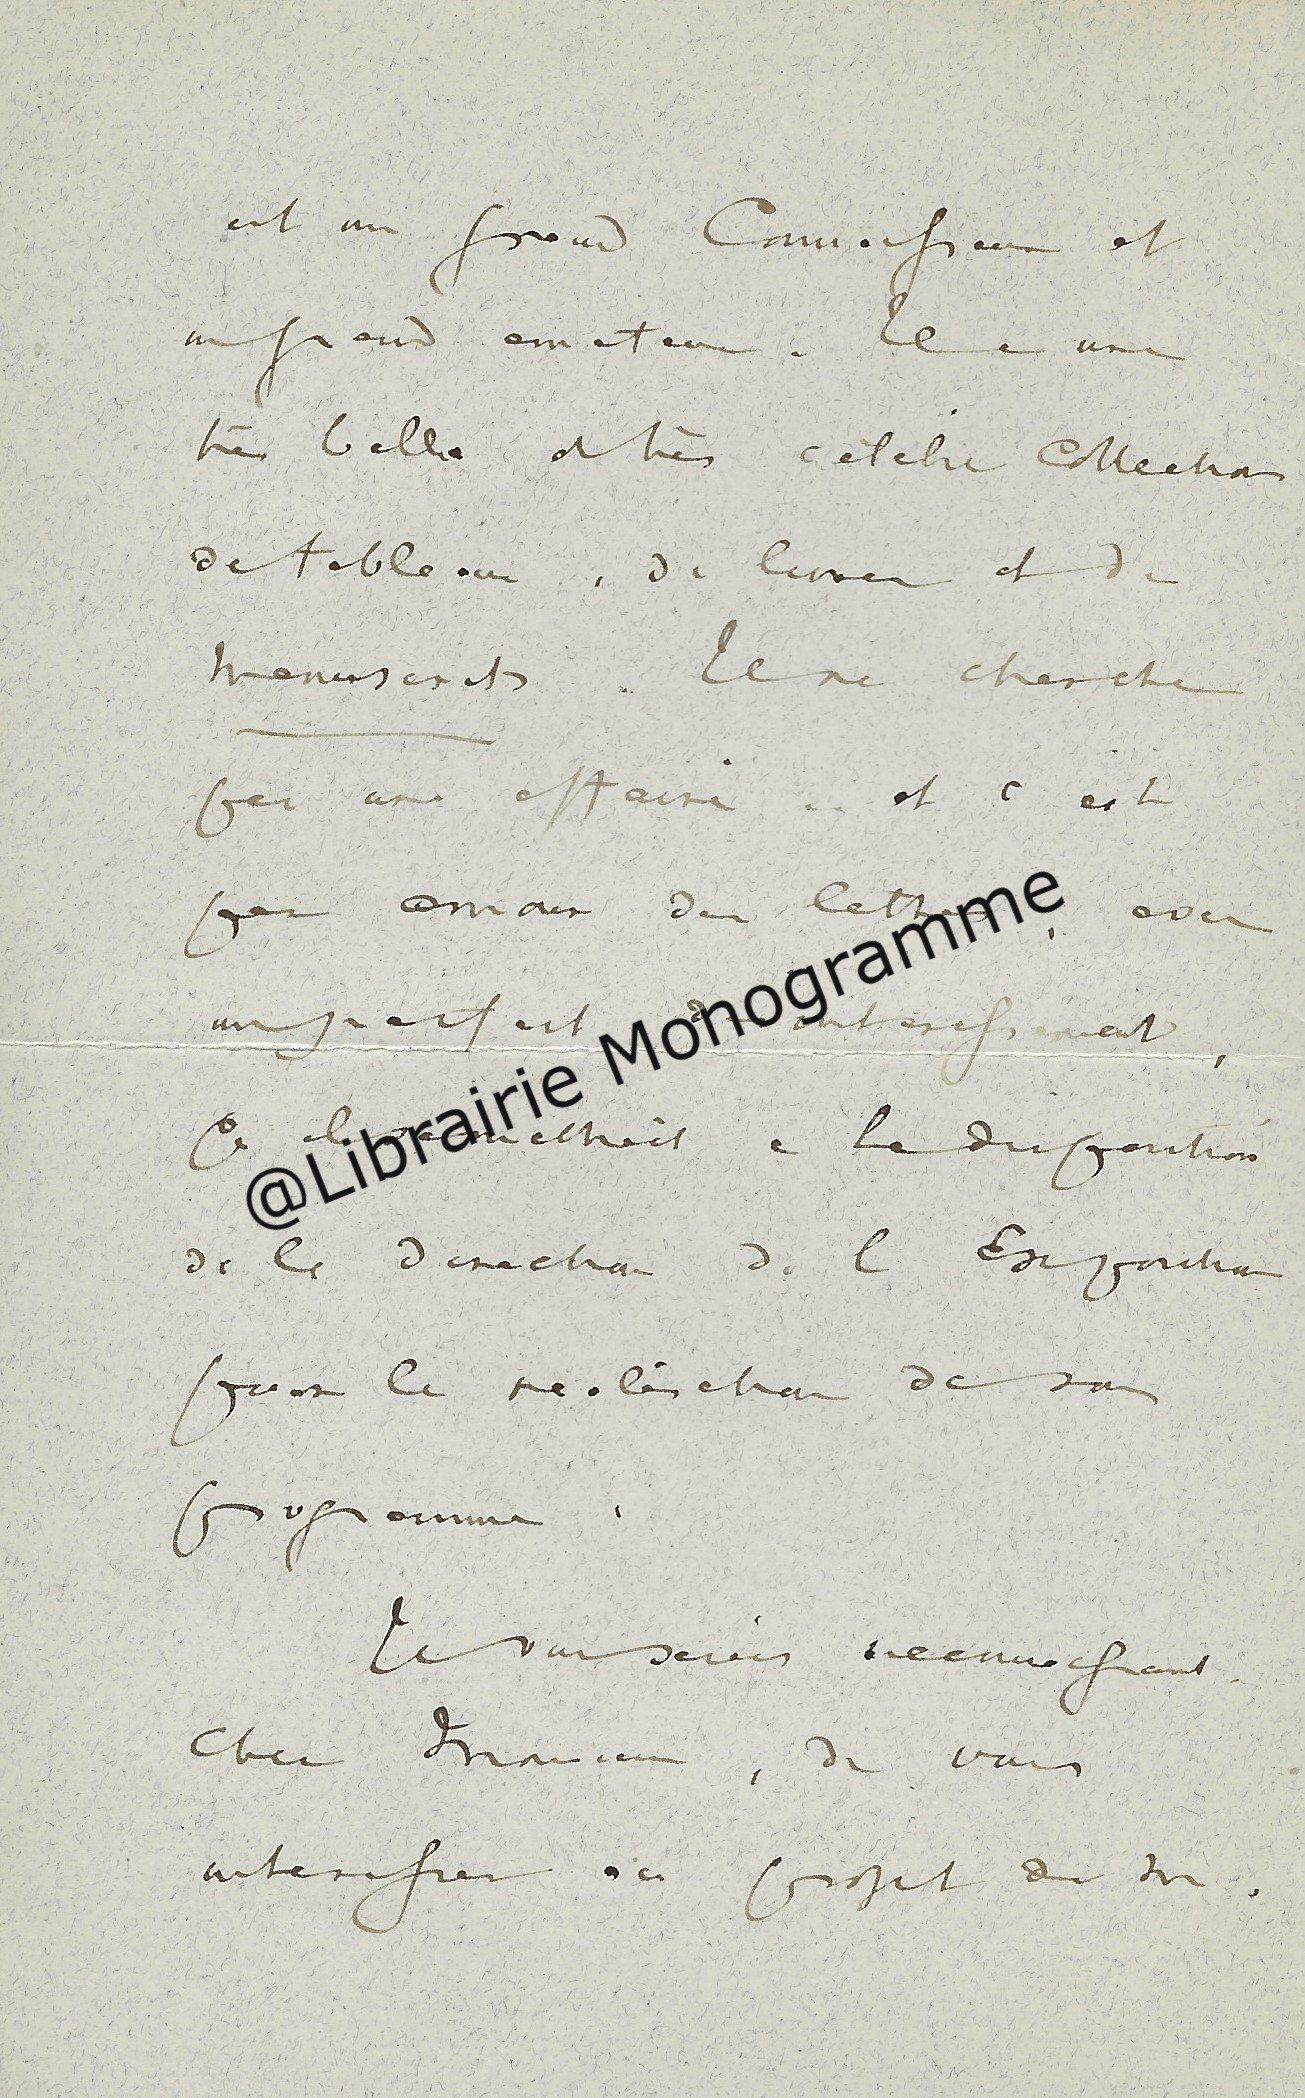 est un grand Connaisseur et
un grand amateur. Il a une
très belle et très célèbre Collection
de tableaux, de livres et de
manuscrits. Il ne cherche
pas une affaire .. et c'est
par amour des lettres, avec
un parfait désintéressement,
qu'il se mettrait à la disposition
de la direction de l'Exposition
pour la réalisation de son
programme.
Je vous serais reconnaissant,
cher Monsieur, de vous
intéresser au projet de M.
@Librairie Monogramme